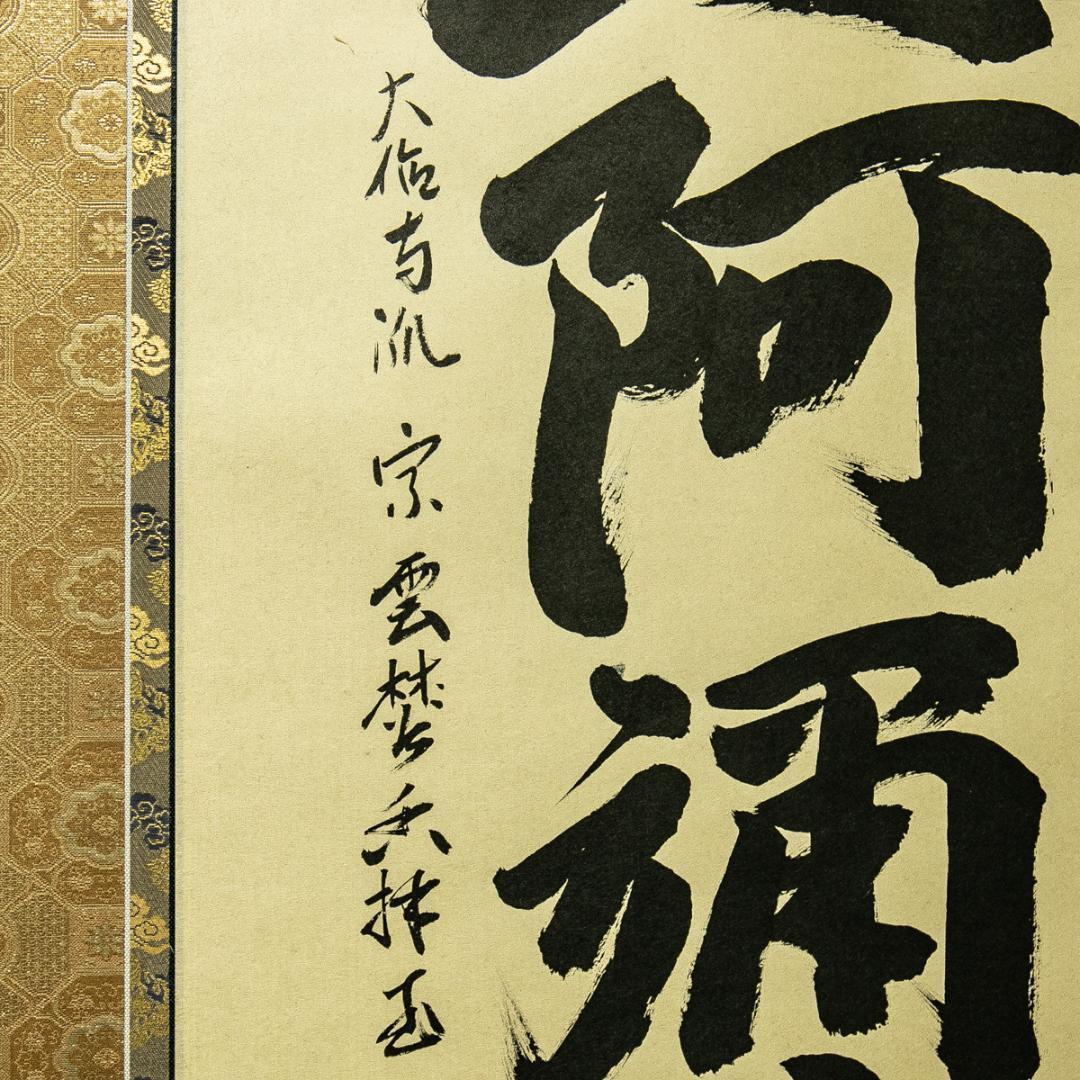 阿彌
大徳寺派 宗雲焚香拝書